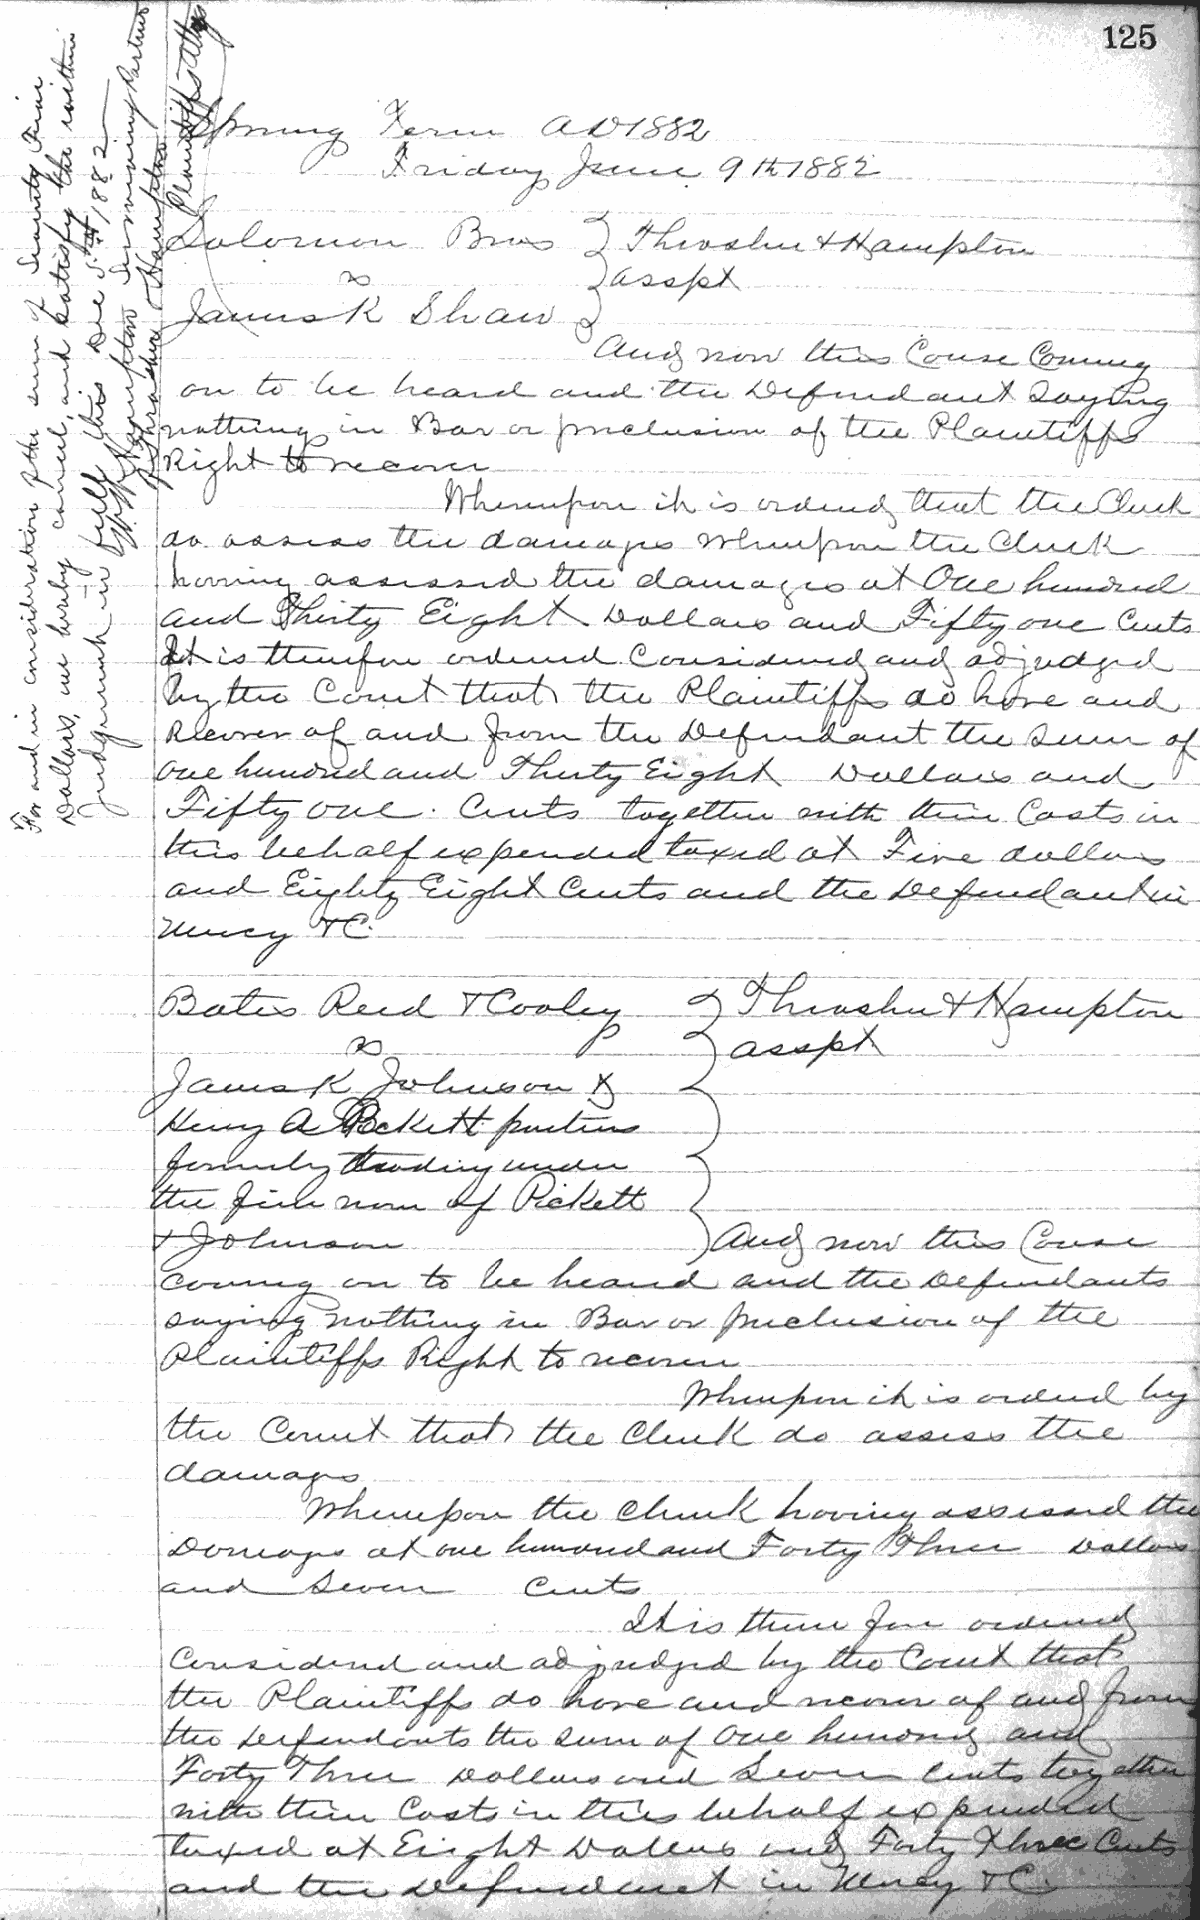 125
Spring Term AD 1882
Friday June 9th 1882
Solomon Bros } Thrasher & Hampton
vs } asspt
James K Shaw }
And now this Cause Coming
on to be heard and the Defendant Saying
nothing in Bar or preclusion of the Plaintiffs
Right to recover
Whereupon it is ordered that the Clerk
do assess the damages Whereupon the Clerk
having assessed the damages at One hundred
and Thirty Eight Dollars and Fifty one Cents
It is therefore ordered Considered and adjudged
by the Court that the Plaintiffs do have and
Recover of and from the Defendant the Sum of
One hundred and Thirty Eight Dollars and
Fifty one Cents together with their Costs in
this behalf expended taxed at Five dollars
and Eighty Eight Cents and the Defendant in
Mercy &C.
For and in consideration of the sum of Seventy Five
Dollars, we hereby cancel, and satisfy the within
Judgement in full this Dec 5th 1882
Hampton Surviving Partner
of Thrasher & Hampton
Plaintiffs Attys
Bates Reed & Cooley } Thrasher & Hampton
vs } asspt
James K Johnson &
Henry A Pickett partners
formerly trading under
the firm name of Pickett
& Johnson } And now this Cause
coming on to be heard and the Defendants
saying nothing in Bar or preclusion of the
Plaintiffs Right to recover
Whereupon it is ordered by
the Court that the Clerk do assess the
damages
Whereupon the Clerk having assessed the
Damages at one hundred and Forty Three Dollars
and Seven Cents
It is there fore ordered
Considered and adjudged by the Court that
the Plaintiffs do have and recover of and from
the Defendants the sum of One hundred and
Forty Three Dollars and Seven Cents together
with their Costs in this behalf expended
taxed at Eight Dollars and Forty Three Cents
and the Defendant in Mercy &C.